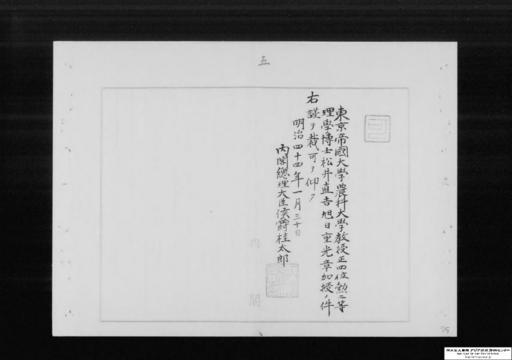 五
東京帝國大學農科大學教授正四位勲三等
理學博士松井直吉旭日重光章加授ノ件
右謹テ裁可ヲ仰ク
明治四十四年一月三十日
内閣總理大臣侯爵桂太郎
内
閣